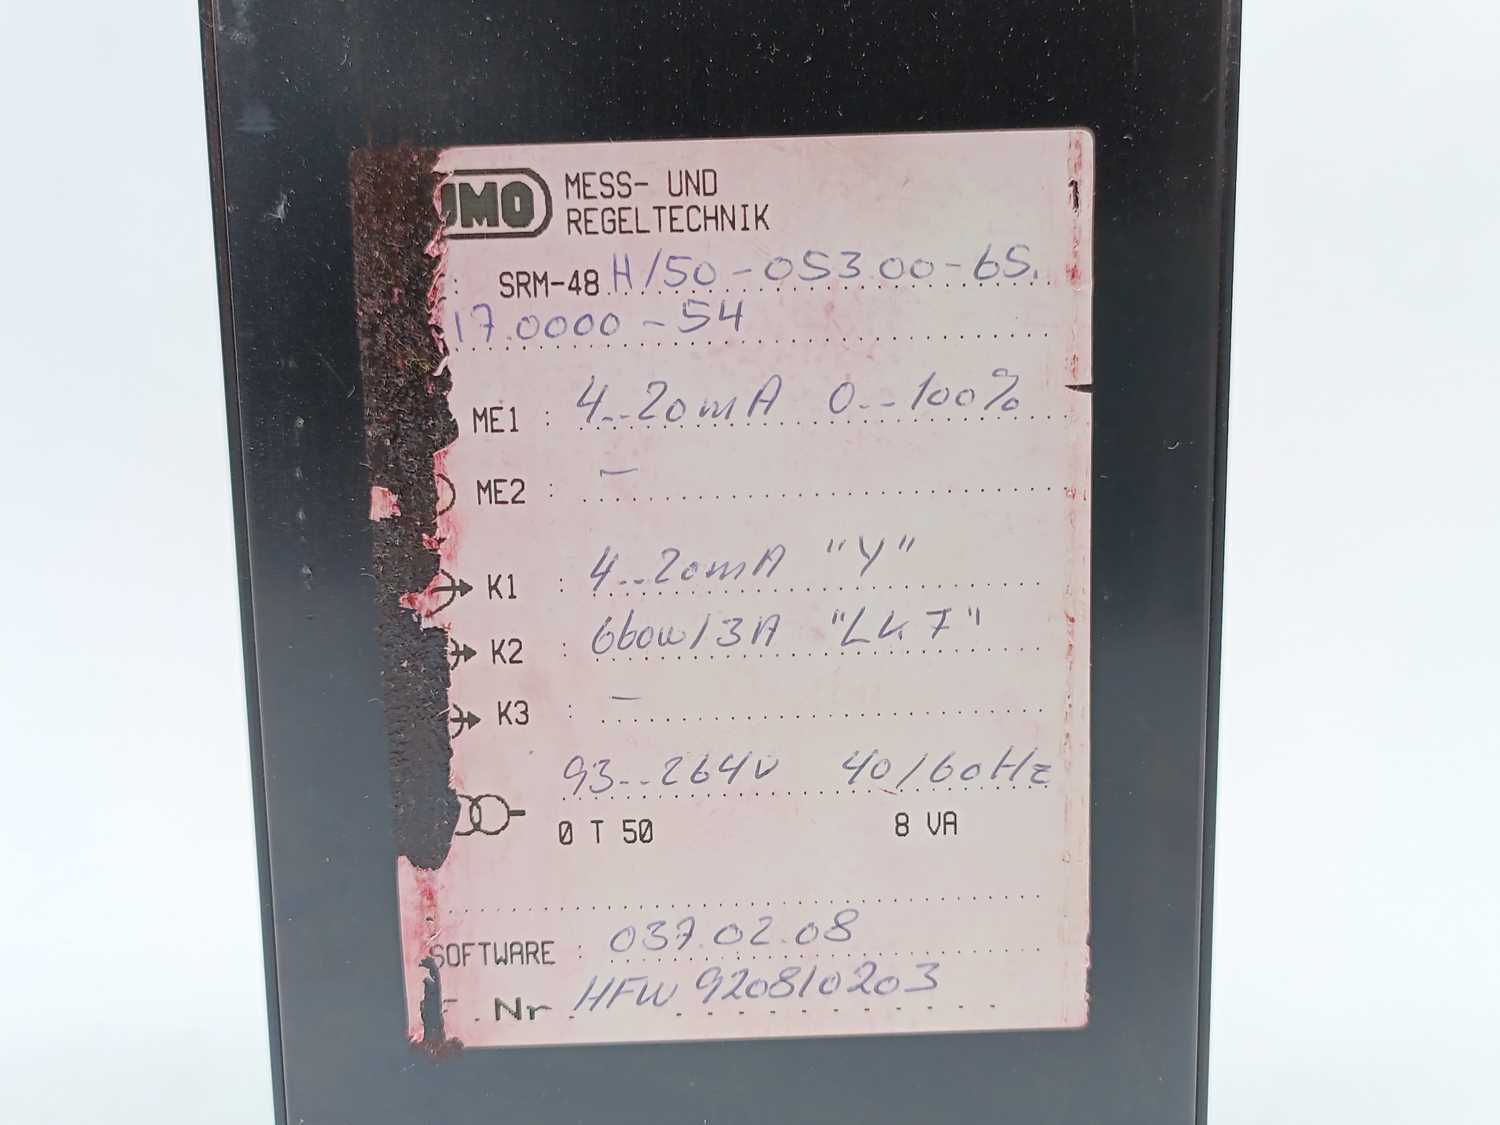 JUMO MESS- UND
REGELTECHNIK
: SRM-48 H/50-053.00-65.
17.0000-54
ME1 : 4..20mA 0..100%
ME2 : -
K1 : 4..20mA "Y"
K2 : /3A "LK7"
K3 : -
93..264V 40/60Hz
0 T 50 8 VA
SOFTWARE : 037.02.08
F. Nr HFW 920810203